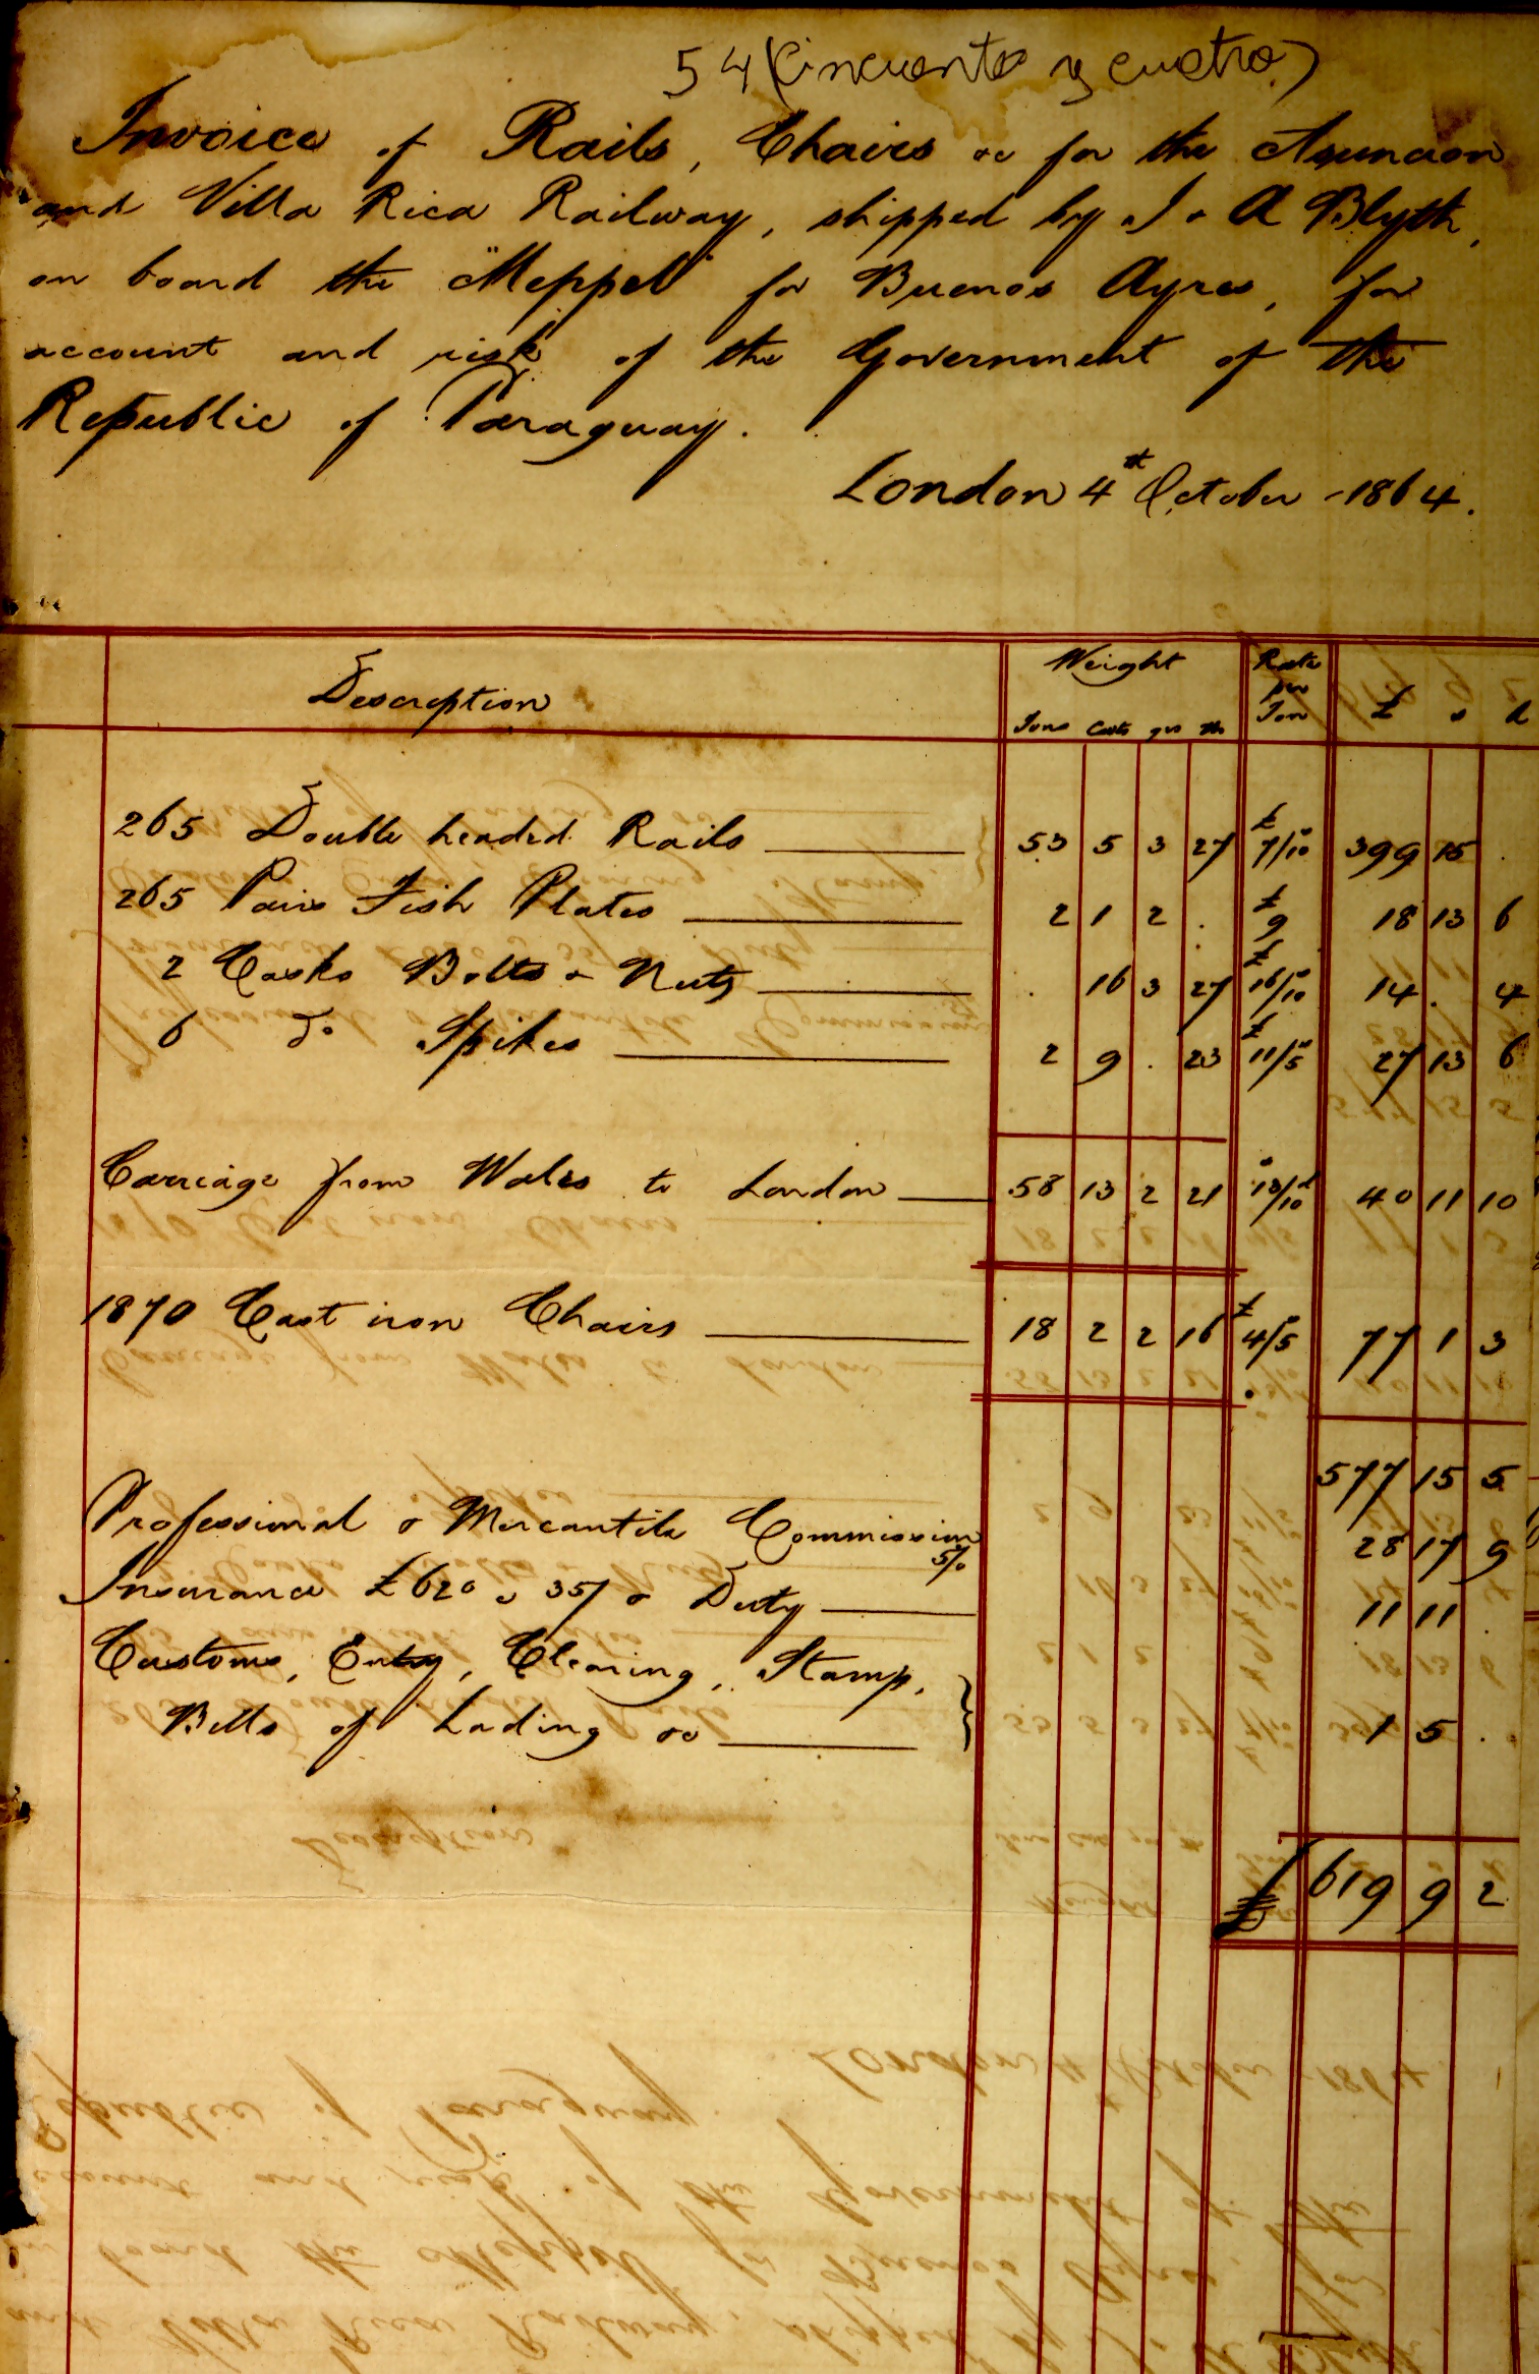 54 (cincuenta y cuatro)
Invoice of Rails, Chairs &c for the Asuncion
and Villa Rica Railway, shipped by J & A Blyth,
on board the "Meppel" for Buenos Ayres, for
account and risk of the Government of the
Republic of Paraguay.
London 4th October 1864.
Description Weight Rate per Ton £ s d
Tons Cwts qrs lbs
265 Double headed Rails 53 5 3 27 £7/10s 399 15 .
265 Pairs Fish Plates 2 1 2 . £9 18 13 6
2 Casks Bolts & Nuts . 16 3 27 £16/10s 14 . 4
6 Do Spikes 2 9 . 23 £11/5s 27 13 6
Carriage from Wales to London 58 13 2 21 13s/10d 40 11 10
1870 Cast iron Chairs 18 2 2 16 £4/5s 77 1 3
577 15 5
Professional & Mercantile Commission 5% 28 17 9
Insurance £620 @ 35/ & Duty 11 11 .
Customs, Entry, Clearing, Stamp,
Bills of Lading &c } 1 5 .
£ 619 9 2